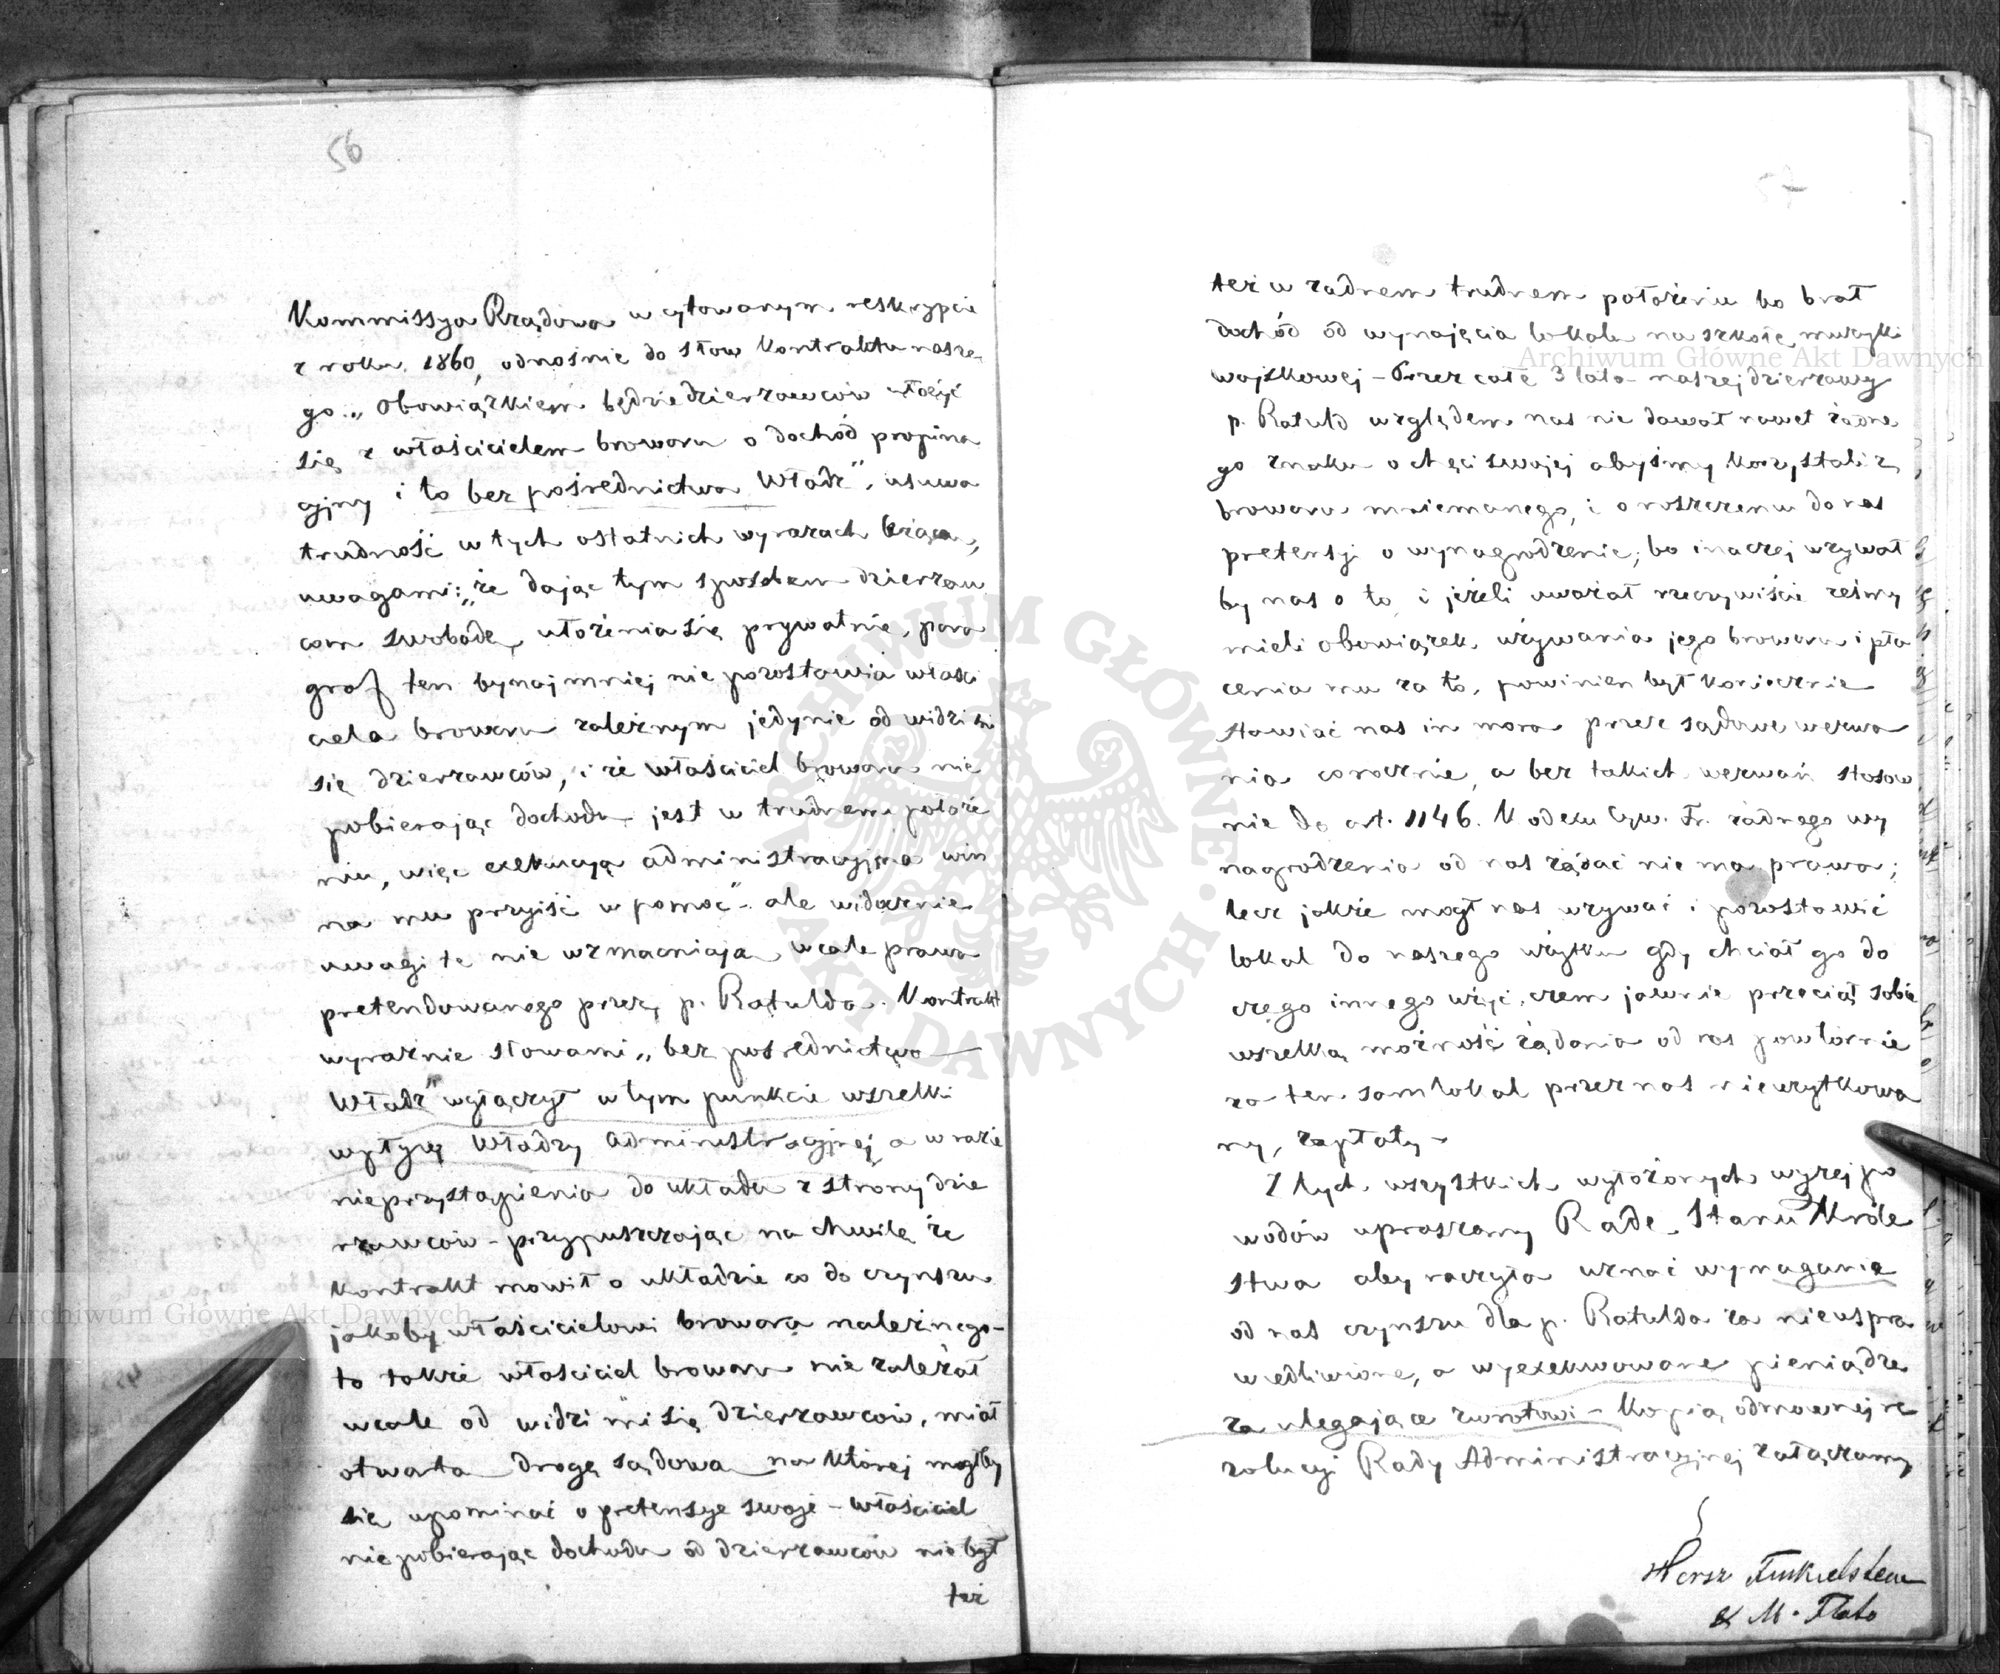 56
Kommissya Rządowa w cytowanym reskrypcie
z roku 1860, odnośnie do słow Kontraktu nasze-
go „obowiązkiem będzie dzierzawców ułożyć
się z właścicielem browaru o dochód propina
cyjny i to bez pośrednictwa Władz", usuwa
trudność w tych ostatnich wyrazach leżącą,
uwagami: „że dając tym sposobem dzierzaw
com swobodę ułożenia się prywatnie, para
graf ten bynajmniej nie pozostawia właści
ciela browaru zależnym jedynie od widzi mi
się dzierzawców, i że właściciel browaru nie
pobierając dochodu jest w trudnem położe
niu, więc exekucyja administracyjna win
na mu przyiść w pomoc" - ale widocznie
uwagi te nie wzmacniają wcale prawa
pretendowanego przez p. Ratulda. Kontrakt
wyraźnie słowami „bez posrednictwa
Władz" wyłączył w tym punkcie wszelki
wpływ Władzy administracyjnej a w razie
nieprzystąpienia do układu z strony dzie
rzawców - przypuszczając na chwilę że
Kontrakt mowił o układzie co do czynszu
jakoby właścicielowi browaru należnego -
to także właściciel browaru nie zależał
wcale od widzi mi się dzierzawców, miał
otwartą drogę sądową na której mogłby
się upominać o pretensye swoje - właściciel
nie pobierając dochodu od dzierzawców nie był
też
57
też w żadnem trudnem położeniu bo brał
dochód od wynajęcia lokalu na szkołę muzyki
wojskowej - Przez całe 3 lata naszej dzierzawy
p. Ratuld względem nas nie dawał nawet żadne
go znaku o chęci swojej abyśmy korzystali z
browaru mniemanego, i o roszczeniu do nas
pretensji o wynagrodzenie; bo inaczej wzywał
by nas o to, i jeżeli uważał rzeczywiście żeśmy
mieli obowiązek używania jego browaru i pła
cenia mu za to, powinien był koniecznie
stawiać nas in mora przez sądowe wezwa
nia corocznie, a bez takich wezwań stosow
nie do art. 1146. Kodexu Cyw. Fr. żadnego wy
nagrodzenia od nas żądać nie ma prawa;
lecz jakże mogł nas wzywać i pozostawić
lokal do naszego użytku gdy chciał go do
czego innego użyć, czem jawnie przeciął sobie
wszelką możność żądania od nas powtórnie
za ten sam lokal przez nas nieużytkowa
ny, zapłaty -
Z tych wszystkich wyłożonych wyżej po
wodów upraszamy Radę Stanu Króle
stwa aby raczyła uznać wymagania
od nas czynszu dla p. Ratulda za nieuspra
wiedliwione, a wyexekwowane pieniądze
za ulegające zwrotowi - Kopią odmownej re
zolucyi Rady Administracyjnej załączamy
Hersz Finkielstein
& M. Flato
Archiwum Główne Akt Dawnych
Archiwum Główne Akt Dawnych
ARCHIWUM GŁÓWNE AKT DAWNYCH